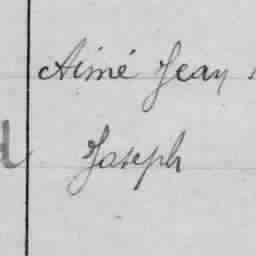 Aimé Jean
Joseph